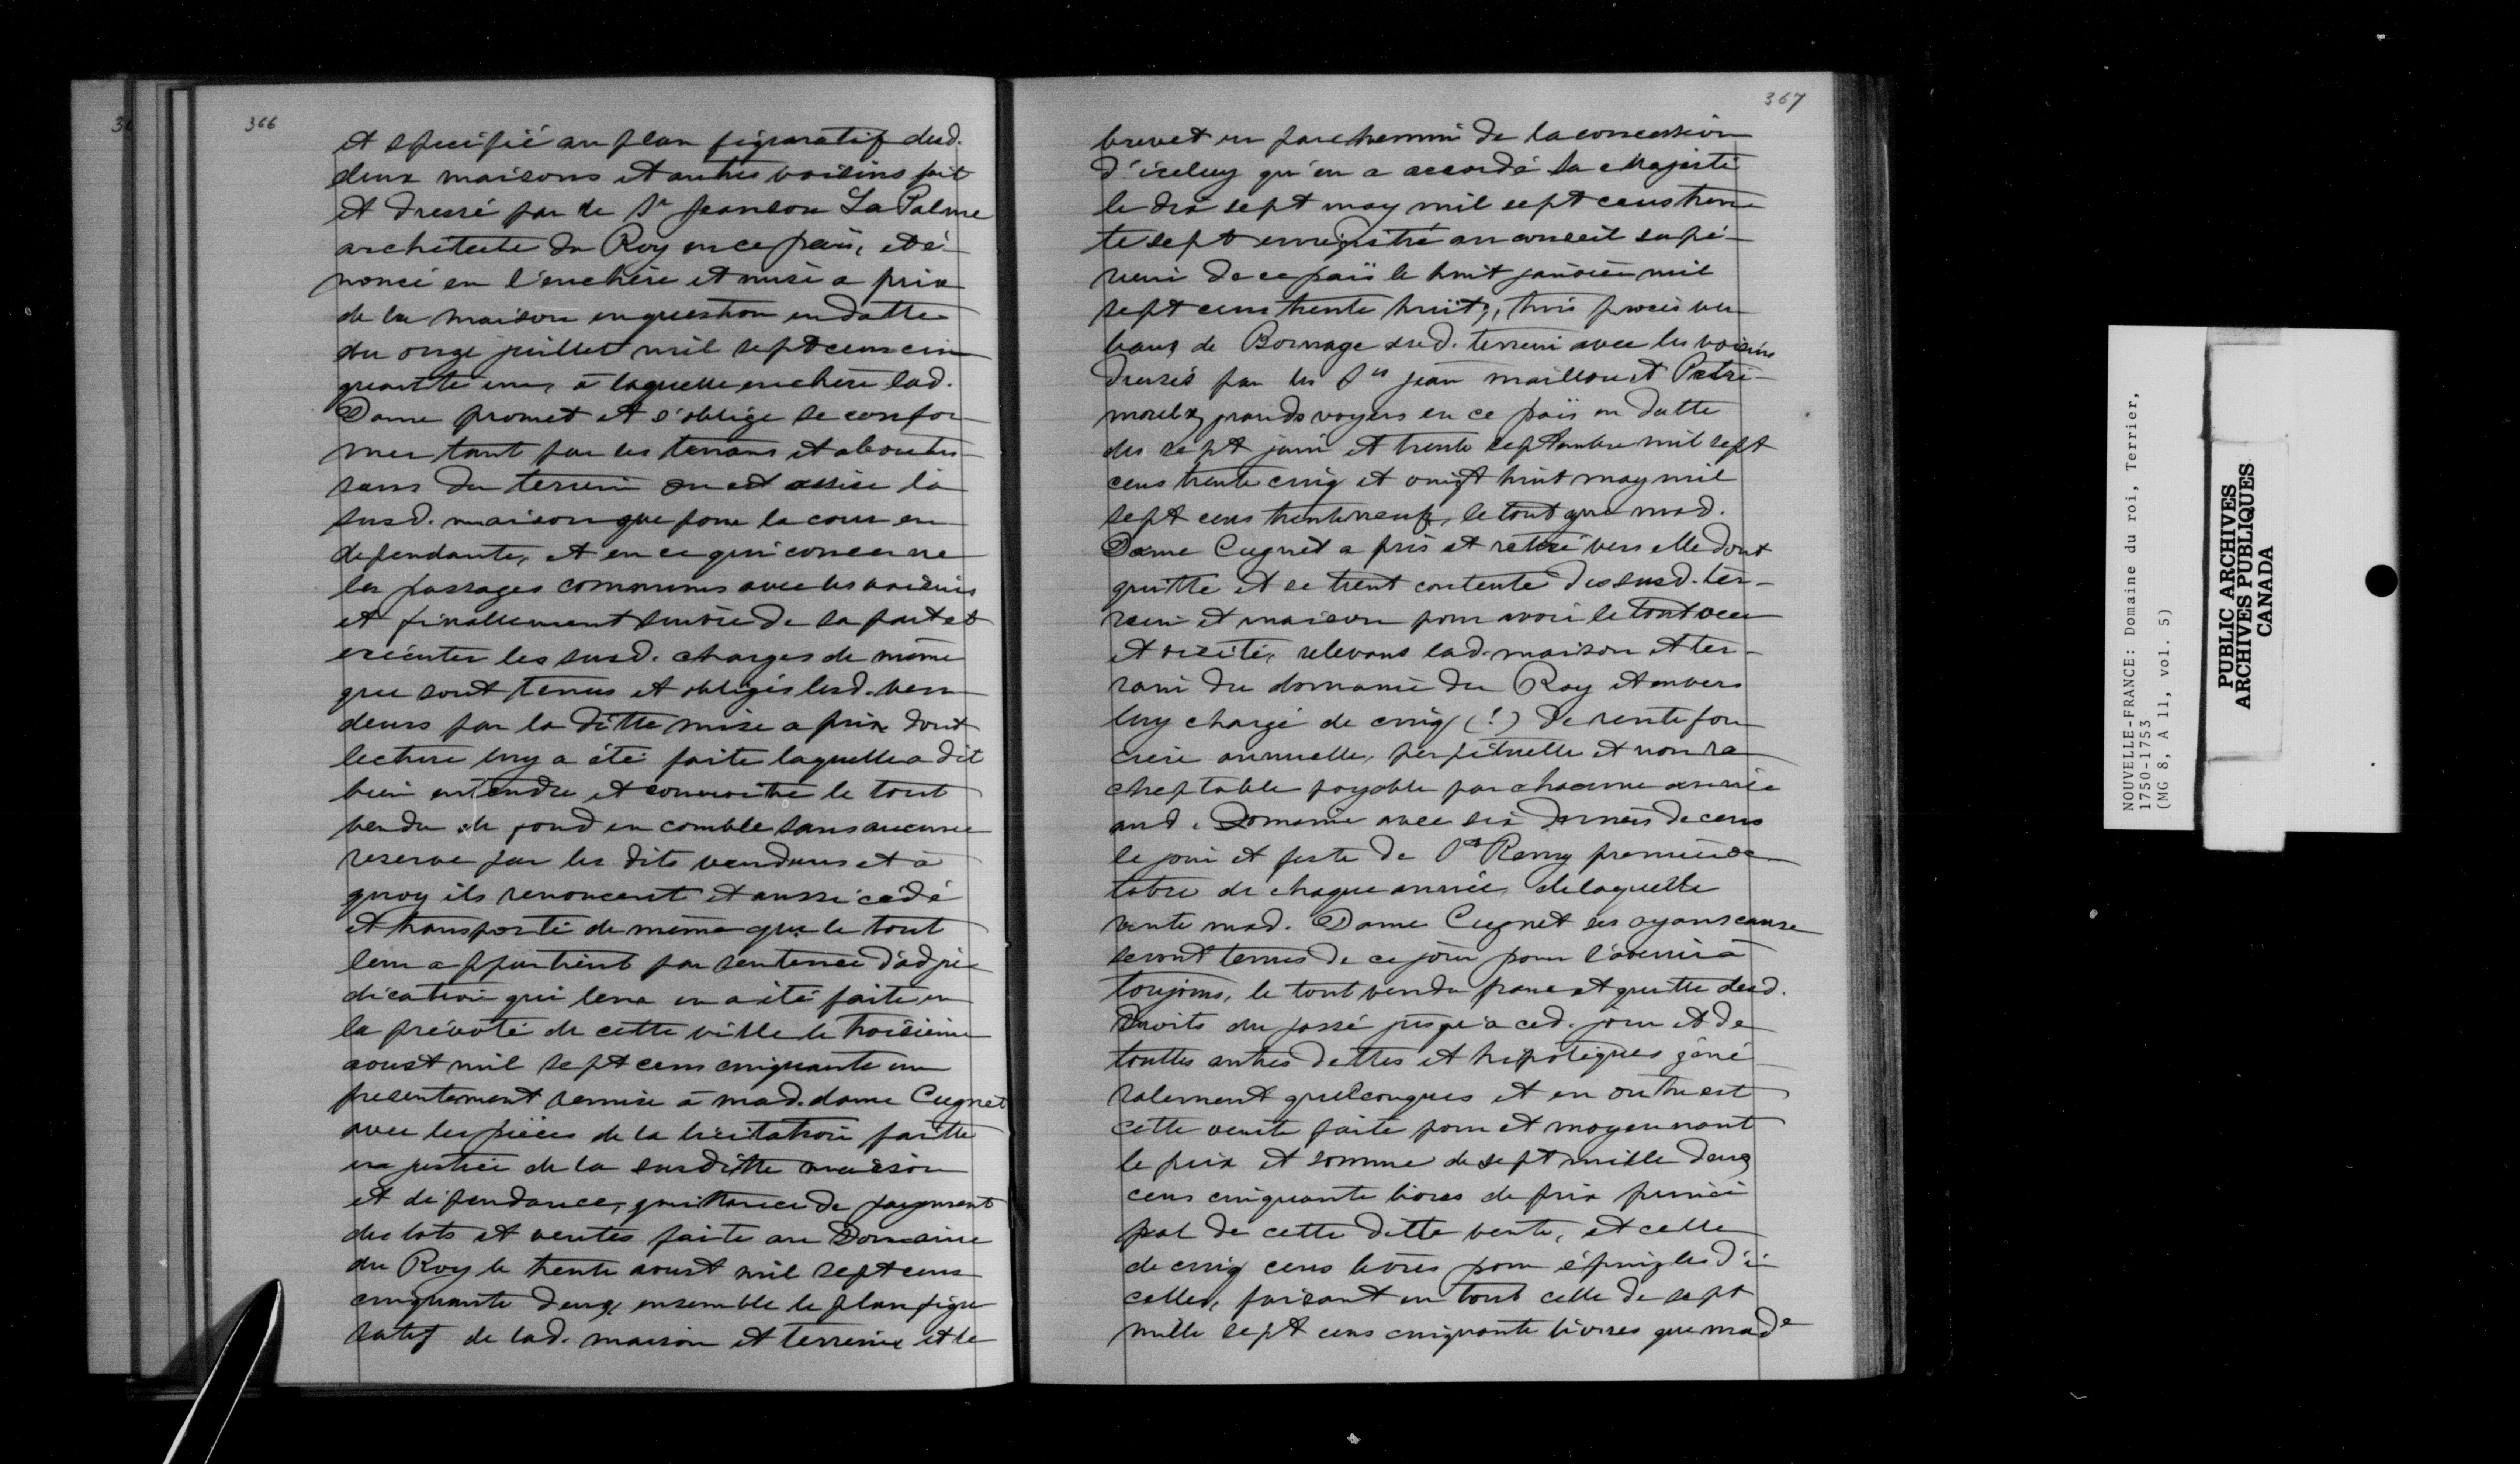 366
et specifié au plan figuratif desd.
deux maisons et autres voisins fait
et dressé par le Sr Jeanson La Palme
architecte du Roy en ce païs, et é-
noncé en l'enchère et mise a prix
de la maison en question en datte
du onze juillet mil sept cens cin
quante un, à laquelle enchère lad.
Dame promet et s'oblige se confor
mer tant par les tenans et aboutis-
sans du terrein ou est assise la
susd. maison que pour la cour en
dependante, et en ce qui concerne
les passages communs avec les voisins
et finallement suivre de sa part et
exécuter les susd. charges de même
que sont tenus et obligés lesd. ven
deurs par la ditte mise a prix dont
lecture luy a été faite laquelle a dit
bien entendre et connoitre le tout
vendu de fond en comble sans aucune
reserve par les dits vendeurs et à
quoy ils renoncent et aussi cédé
et transporté de même que le tout
leur appartient par sentence d'adju
dication qui leur en a été faite en
la prévoté de cette ville le troisième
aoust mil sept cens cinquante un
presentement remise à mad. dame Cugnet
avec les pièces de la licitation faitte
en justice de la susditte maison
et dépendances, quittance de payement
des lots et ventes faite au Domaine
du Roy le trente aoust mil sept cens
cinquante deux, ensemble le plan figu
ratif de lad. maison et terrein et le
367
brevet en parchemin de la concession
d'iceluy qu'en a accordé sa Majesté
le dix sept may mil sept cens tren
te sept enregistré au conseil supé-
rieur de ce païs le huit janvier mil
sept cens trente huit, trois procès ver
baux de Bornage dud. terrein avec les voisins
dressés par les Srs Jean maillou et Patri-
moulx, grands voyers en ce païs en datte
des sept juin et trente septembre mil sept
cens trente cinq et vingt huit may mil
sept cens trente neuf, le tout que mad.
Dame Cugnet a pris et retiré vers elle dont
quitte et se tient contente des susd. ter-
rein et maison pour avoir le tout veu
et visité, relevans lad. maison et ter-
rain du domaine du Roy et envers
luy chargé de cinq (!) de rente fon
ciere annuelle, perpétuelle et non ra
cheptable payable par chacune année
aud. Domaine avec six deniers de cens
le jour et feste de St Remy premier oc
tobre de chaque année, de laquelle
rente mad. Dame Cugnet ses ayans cause
seront tenus de ce jour pour l'avenir à
toujours, le tout vendu franc et quitte desd.
Droits du passé jusqu'a ced. jour et de
touttes autres dettes et hipotèques géné
ralement quelconques et en outre est
cette vente faite pour et moyennant
le prix et somme de sept mille deux
cens cinquante livres de prix princi
pal de cette ditte vente, et celle
de cinq cens livres pour épingles d'i
celles, faisant en tout celle de sept
mille sept cens cinquante livres que made
NOUVELLE-FRANCE: Domaine du roi, Terrier,
1750-1753
(MG 8, A 11, vol. 5)
PUBLIC ARCHIVES
ARCHIVES PUBLIQUES
CANADA